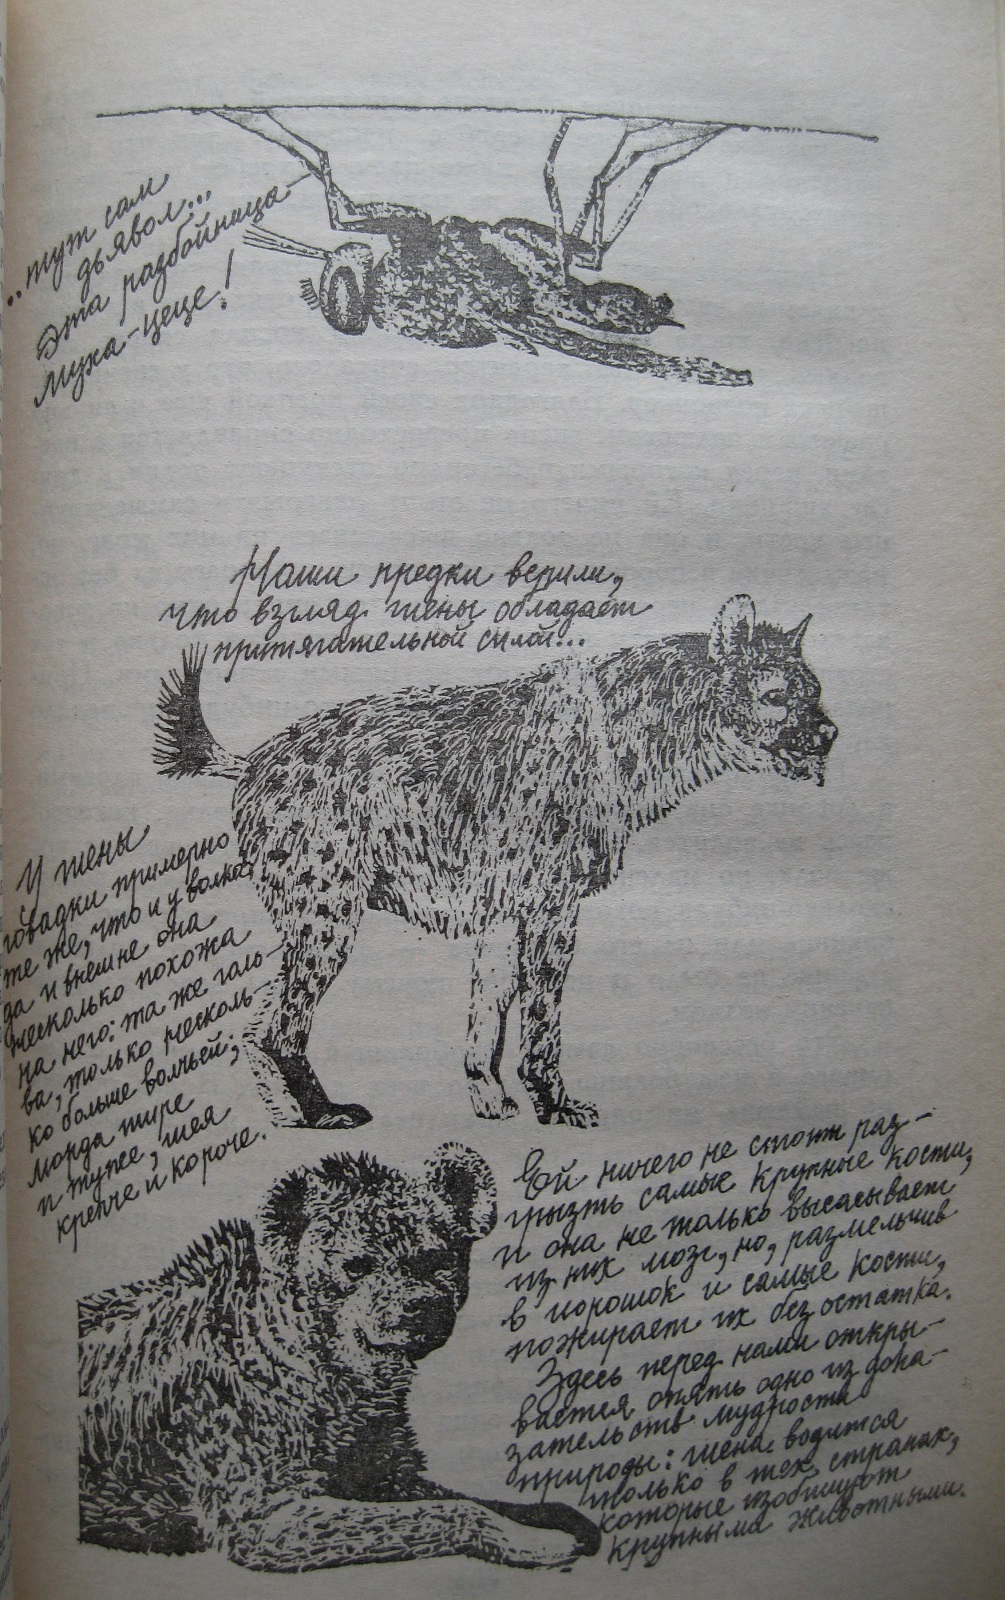 ..тут сам
дьявол...
Эта разбойница
муха-цеце!
Наши предки верили,
что взгляд гиены обладает
притягательной силой...
У гиены
повадки примерно
те же, что и у волка,
да и внешне она
несколько похожа
на него: та же голь-
ва, только несколь-
ко больше волчьей;
морда шире
и тупее, шея
крепче и короче.
Ей ничего не стоит раз-
грызть самые крупные кости,
и она не только высасывает
из них мозг, но, размельчив
в порошок и самые кости,
пожирает их без остатка.
Здесь перед нами откры-
вается опять одно из дока-
зательств мудрости
природы: гиена водится
только в тех странах,
которые изобилуют
крупными животными.